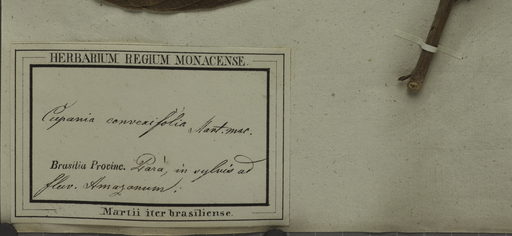 HERBARIUM REGIUM MONACENSE.
Cupania convexifolia Mart. msc.
Brasilia Provinc. Pará, in sylvis ad
fluv. Amazonum;
Martii iter brasiliense.